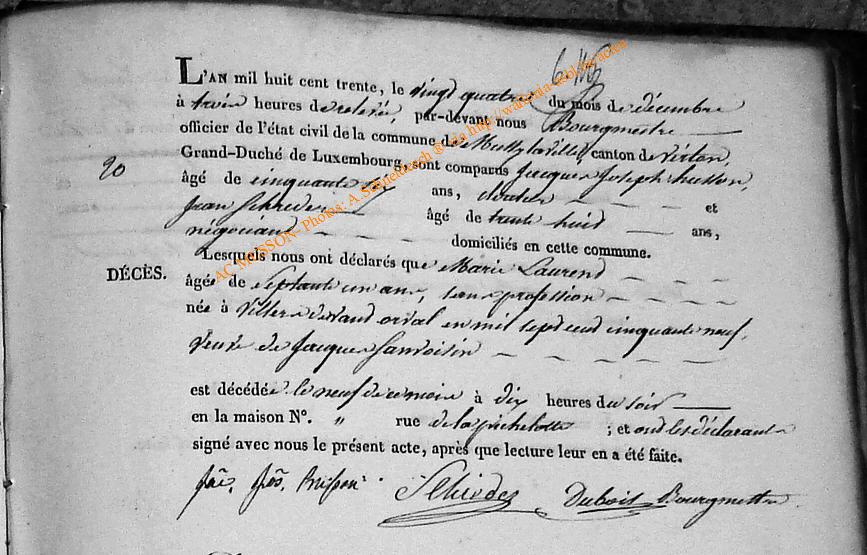 L'AN mil huit cent trente, le vingt quatre du mois de décembre
à trois heures de relevée, par-devant nous Bourgmestre
officier de l'état civil de la commune de Mussy la ville, canton de Virton,
Grand-Duché de Luxembourg, sont comparus Jacques Joseph husson,
20
âgé de cinquante ans, et
Jean âgé de trente huid ans,
négociand domiciliés en cette commune.
Lesquels nous ont déclarés que Marie Laurend
DÉCÈS.
âgée de septante un ans, sans profession
née à Villers devand orval en mil sept cend cinquante neuf.
veuve de Jacques Sanvoisin
est décédée le neuf de ce mois à dix heures du soir
en la maison N°. " rue de la ; et ond les déclarants
signé avec nous le présent acte, après que lecture leur en a été faite.
Dubois Bourgmestre
AC MUSSON- Photos: A Schneidesch